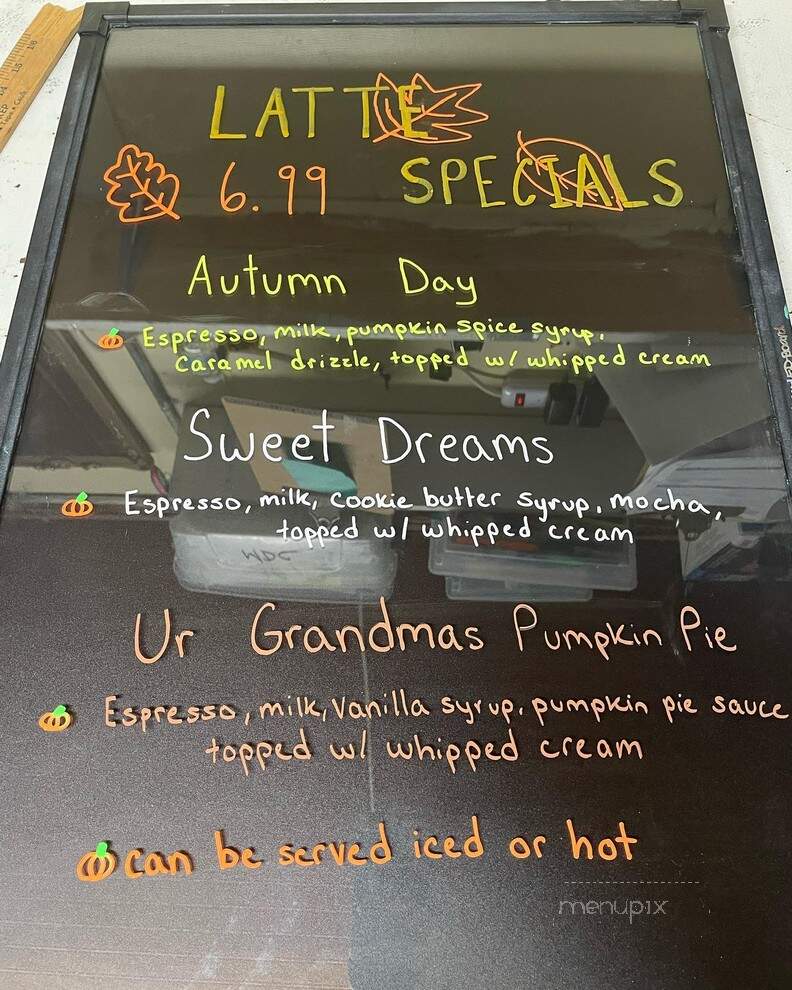 LATTE
6.99 SPECIALS
Autumn Day
Espresso, milk, pumpkin spice syrup,
Caramel drizzle, topped w/ whipped cream
Sweet Dreams
Espresso, milk, cookie butter syrup, mocha,
topped w/ whipped cream
WDC
Ur Grandmas Pumpkin Pie
Espresso, milk, Vanilla syrup, pumpkin pie sauce
topped w/ whipped cream
can be served iced or hot
menupix